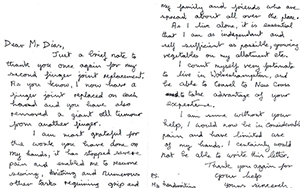 Dear Mr Dias,
Just a brief note to
thank you once again for my
second finger joint replacement.
As you know I now have a
finger joint replaced on each
hand and you have also
removed a giant cell tumour
from another finger.
I am most grateful for
the work you have done on
my hands, it has stopped severe
pain and enabled me to resume
sewing, knitting and numerous
other tasks requiring grip and
my family and friends who are
spread about all over the place.
As I live alone, it is essential
that I am as independant and
self sufficient as possible, growing
vegetables on my allotment etc.
I count myself very fortunate
to live in Wolverhampton, and
be able to travel to New Cross
and to take advantage of your
expertise.
I am sure without your
help, I would now be in considerable
pain and have limited use
of my hands. I certainly would
not be able to write this letter.
Thank you again for
your help
PS.
My handwriting
Yours sincerely